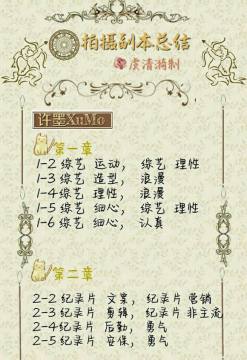 拍摄副本总结
虞清漪制
许墨XuMo
第一章
1-2 综艺 运动， 综艺 理性
1-3 综艺 造型， 浪漫
1-4 综艺 理性， 浪漫
1-5 综艺 细心， 综艺 理性
1-6 综艺 细心， 认真
第二章
2-2 纪录片 文案， 纪录片 营销
2-3 纪录片 剪辑， 纪录片 非主流
2-4 纪录片 后勤， 勇气
2-5 纪录片 安保， 勇气